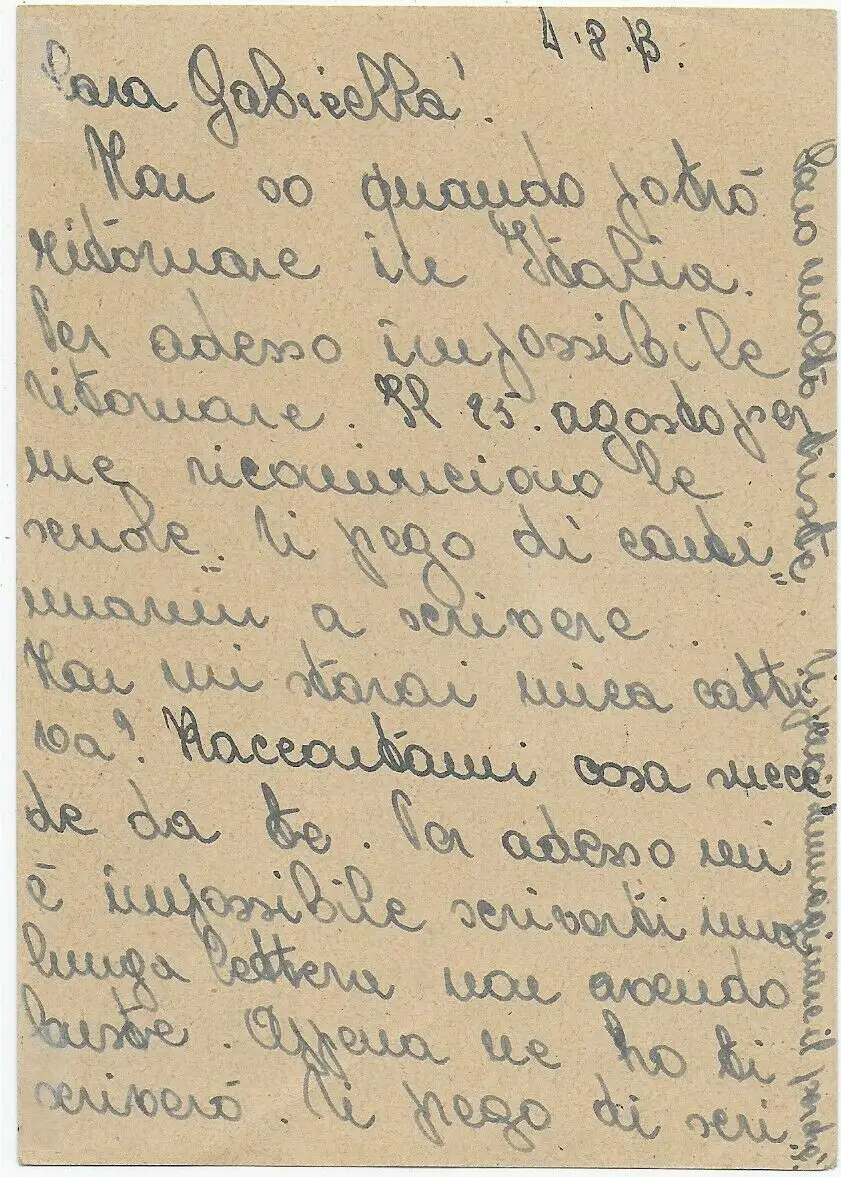 4.8.43.
Cara Gabriella!
Non so quando potrò
ritornare in Italia.
Per adesso impossibile
ritornare. Il 25. agosto per
me ricominciano le
scuole. Ti pego di conti=
nuarmi a scrivere
Non mi starai mica catti
va! Raccontami cosa succe
de da te. Per adesso mi
è impossibile scriverti una
lunga lettera non avendo
buste. Appena ne ho ti
scriverò. Ti pego di scri
Sono molto triste.
Ti puoi immaginare il perchè